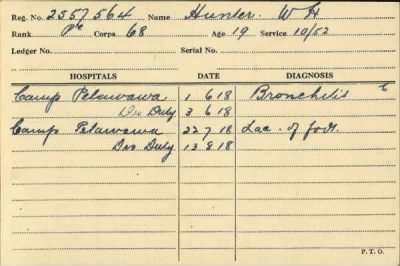 Reg. No. 2557564 Name Hunter. W H
Rank Pte Corps 68 Age 19 Service 10/52
Ledger No. Serial No.
HOSPITALS DATE DIAGNOSIS
Camp Petawawa 1 6 18 Bronchitis
Dis Duty 3 6 18
Camp Petawawa 22 7 18 Lac. of foot.
Dis Duty 13 8 18
P. T. O.